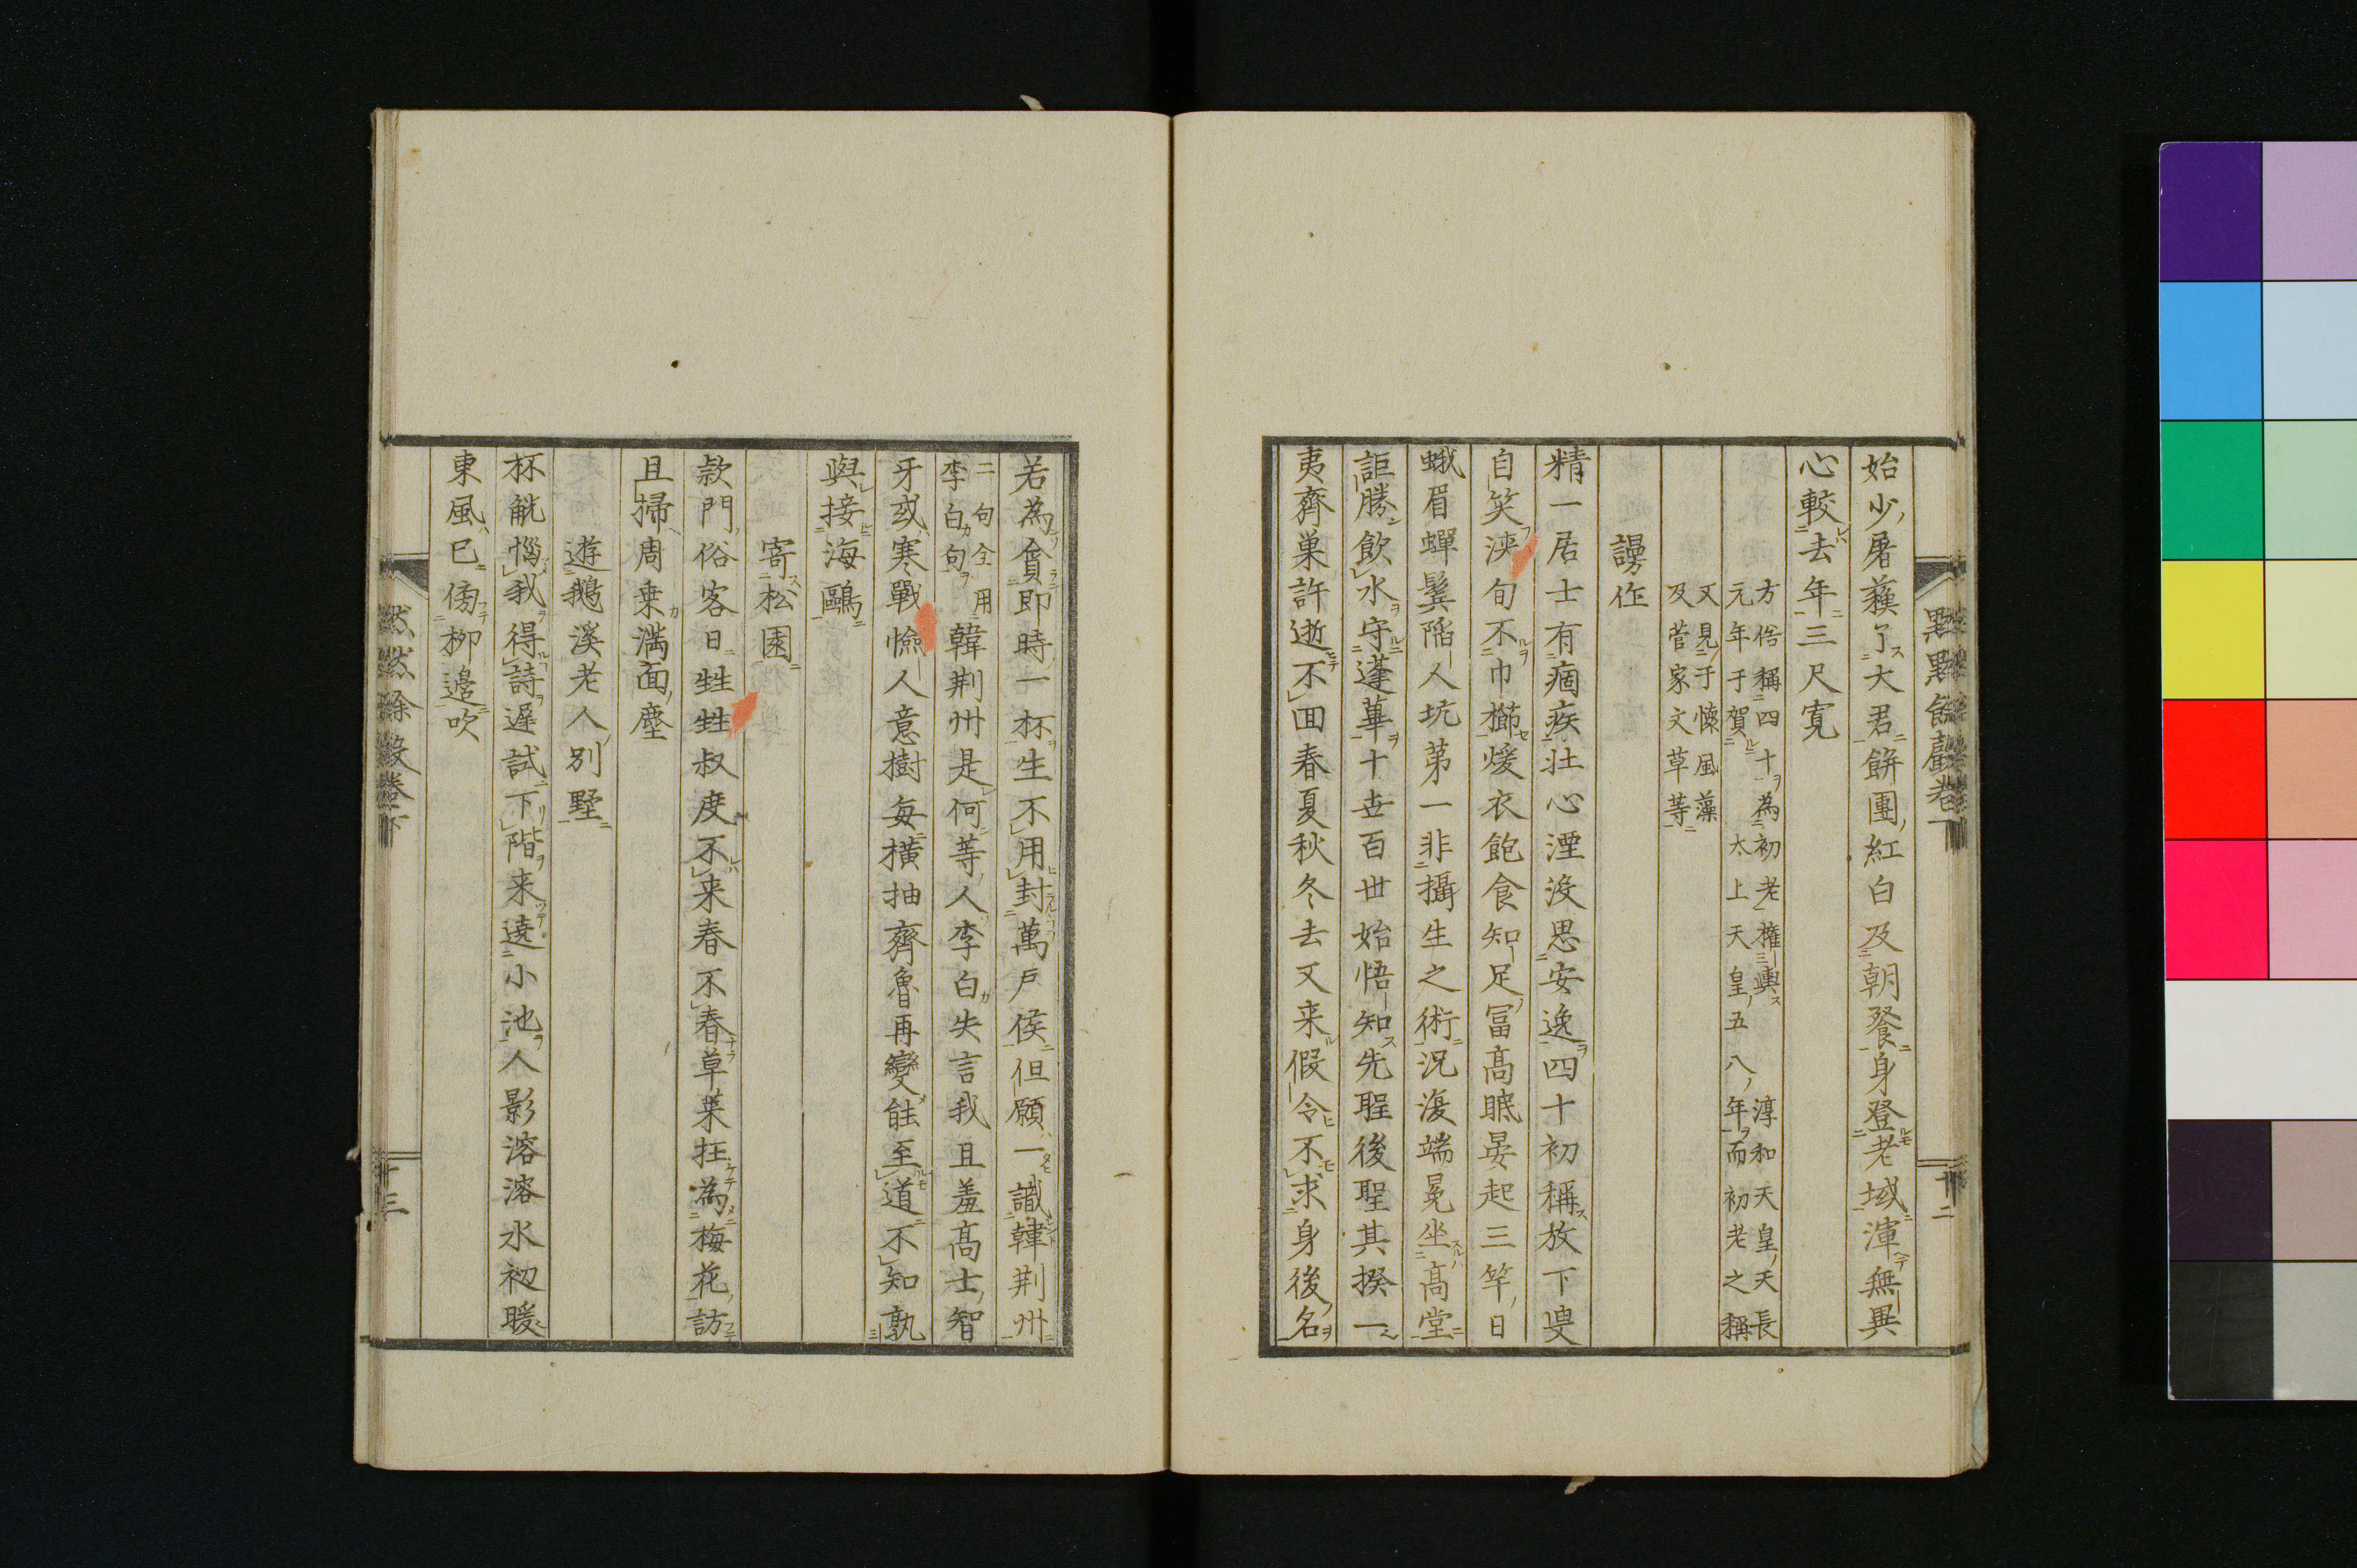 始少屠蘓了大君餅團紅白及朝餐身登老域渾無異
心較去年三尺寛
方俗稱四十為初老権輿淳和天皇天長
元年于賀太上天皇五八年而初老之稱
又見于懐風藻
及菅家文草等
謾作
精一居士有痼疾壮心湮没思安逸四十初稱放下叟
自笑浹旬不巾櫛煖衣飽食知足冨髙眠晏起三竿日
蛾眉蟬鬂陥人坑苐一非攝生之術況復端冕坐髙堂
詎勝飲水守蓬蓽十世百世始悟知先聖後聖其揆一
夷齊巣許逝不囬春夏秋冬去又来假令不求身後名
若為貧即時一杯生不用封萬戸侯但願一識韓荆州
二句全用
李白句
韓荆州是何等人李白失言我且羞髙士智
牙或寒戰憸人意樹每横抽齊魯再變能至道不知孰
與接海鷗
寄松園
款門俗客日甡甡叔度不来春不春草菜抂為梅花訪
且掃周乗満面塵
遊鵝溪老人別墅
杯觥惱我得詩遅試下階来遶小池人影溶溶氷初暖
東風已傍栁邉吹
十二
十三